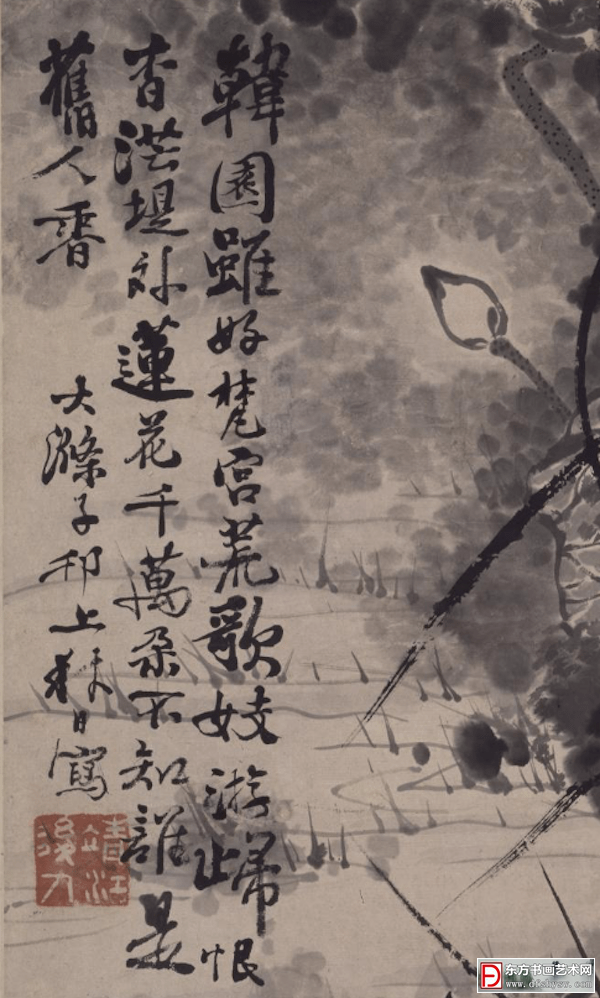 韓園雖好梵宮荒歌妓游歸恨
杳茫堤外蓮花千萬朵不知誰是
舊人香
大滌子邗上秋日寫
靖江
後人
东方书画艺术网